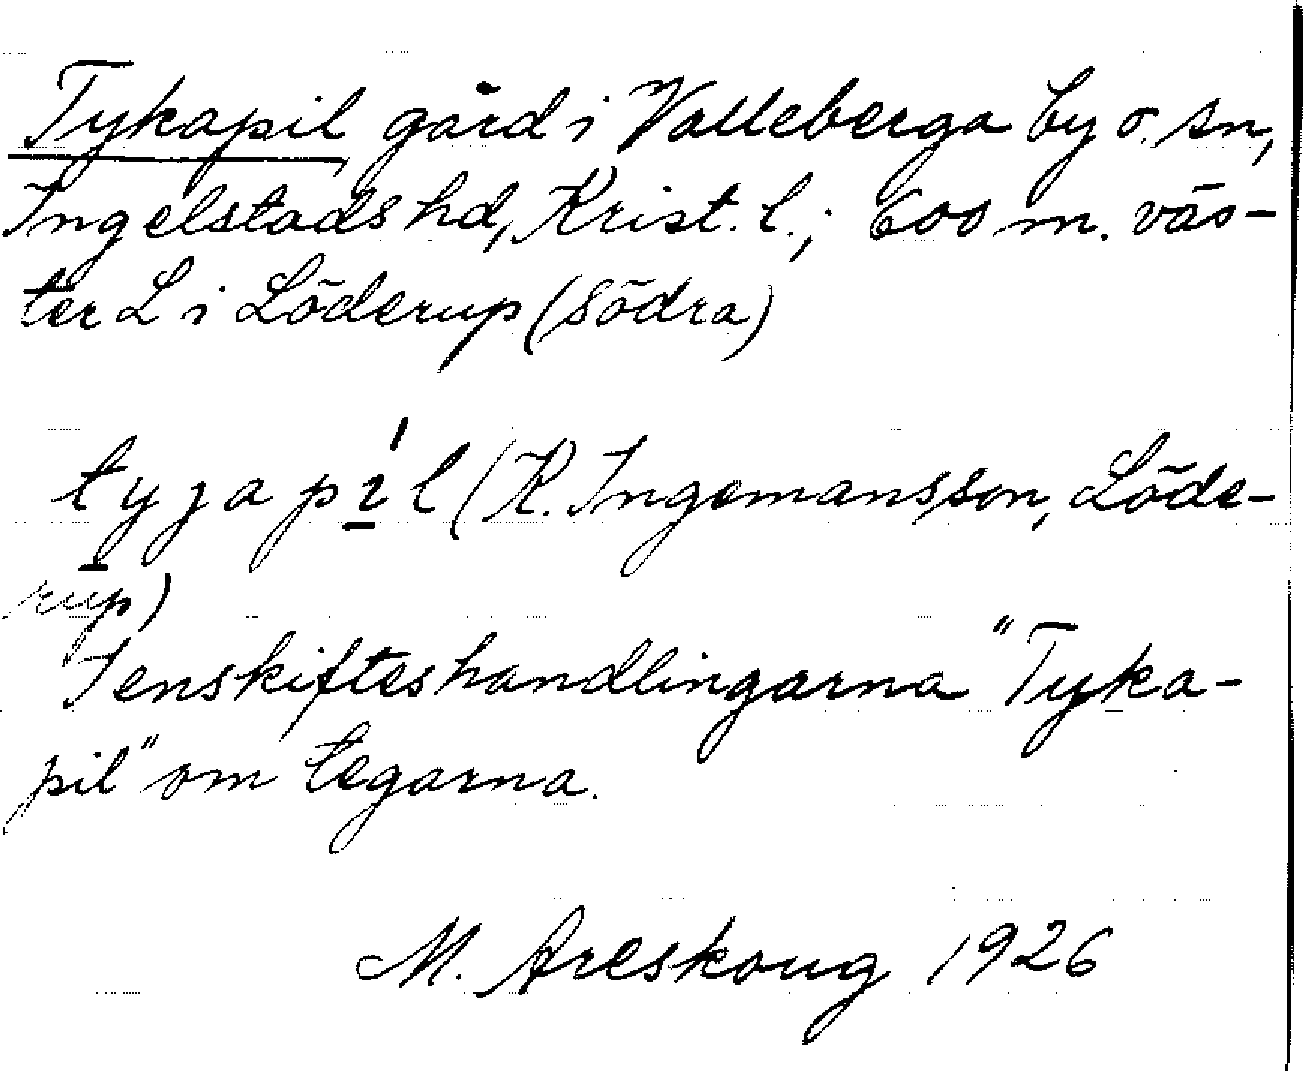 Tykapil gård i Valleberga by o. sn,
Ingelstads hd, Krist. l.; 600 m. väs-
ter L i Löderup (södra)
tyjapíl (K. Ingemansson, Löde-
rup)
I enskifteshandlingarna "Tyka-
pil" om tegarna.
M. Areskoug 1926